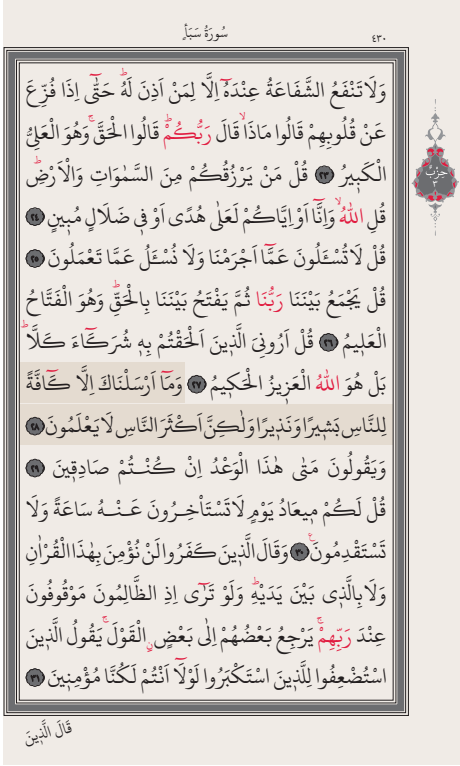 سُورَةُ سَبَأٍ
٤٣٠
وَلَا تَنْفَعُ الشَّفَاعَةُ عِنْدَهُٓ اِلَّا لِمَنْ اَذِنَ لَهُۜ حَتّٰٓى اِذَا فُزِّعَ
عَنْ قُلُوبِهِمْ قَالُوا مَاذَاۙ قَالَ رَبُّكُمْۜ قَالُوا الْحَقَّۚ وَهُوَ الْعَلِيُّ
الْكَب۪يرُ ﴿٢٣﴾ قُلْ مَنْ يَرْزُقُكُمْ مِنَ السَّمٰوَاتِ وَالْاَرْضِۜ
قُلِ اللّٰهُۙ وَاِنَّٓا اَوْ اِيَّاكُمْ لَعَلٰى هُدًى اَوْ ف۪ي ضَلَالٍ مُب۪ينٍ ﴿٢٤﴾
قُلْ لَا تُسْـَٔلُونَ عَمَّٓا اَجْرَمْنَا وَلَا نُسْـَٔلُ عَمَّا تَعْمَلُونَ ﴿٢٥﴾
قُلْ يَجْمَعُ بَيْنَنَا رَبُّنَا ثُمَّ يَفْتَحُ بَيْنَنَا بِالْحَقِّۜ وَهُوَ الْفَتَّاحُ
الْعَل۪يمُ ﴿٢٦﴾ قُلْ اَرُونِيَ الَّذ۪ينَ اَلْحَقْتُمْ بِه۪ شُرَكَٓاءَ كَلَّاۜ
بَلْ هُوَ اللّٰهُ الْعَز۪يزُ الْحَك۪يمُ ﴿٢٧﴾ وَمَٓا اَرْسَلْنَاكَ اِلَّا كَٓافَّةً
لِلنَّاسِ بَش۪يرًا وَنَذ۪يرًا وَلٰكِنَّ اَكْثَرَ النَّاسِ لَا يَعْلَمُونَ ﴿٢٨﴾
وَيَقُولُونَ مَتٰى هٰذَا الْوَعْدُ اِنْ كُنْتُمْ صَادِق۪ينَ ﴿٢٩﴾
قُلْ لَكُمْ م۪يعَادُ يَوْمٍ لَا تَسْتَأْخِرُونَ عَنْهُ سَاعَةً وَلَا
تَسْتَقْدِمُونَ۟ ﴿٣٠﴾ وَقَالَ الَّذ۪ينَ كَفَرُوا لَنْ نُؤْمِنَ بِهٰذَا الْقُرْاٰنِ
وَلَا بِالَّذ۪ي بَيْنَ يَدَيْهِۜ وَلَوْ تَرٰٓى اِذِ الظَّالِمُونَ مَوْقُوفُونَ
عِنْدَ رَبِّهِمْۚ يَرْجِعُ بَعْضُهُمْ اِلٰى بَعْضٍۨ الْقَوْلَۚ يَقُولُ الَّذ۪ينَ
اسْتُضْعِفُوا لِلَّذ۪ينَ اسْتَكْبَرُوا لَوْلَٓا اَنْتُمْ لَكُنَّا مُؤْمِن۪ينَ ﴿٣١﴾
قَالَ الَّذ۪ينَ
حِزْبُ
٣